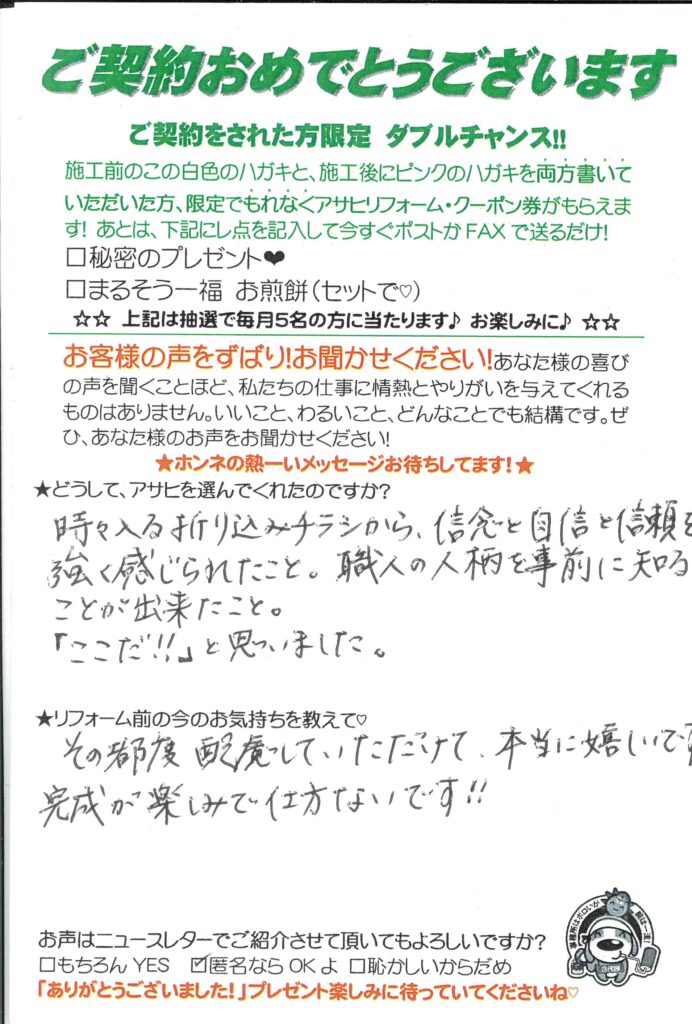 ご契約おめでとうございます
ご契約をされた方限定 ダブルチャンス!!
施工前のこの白色のハガキと、施工後にピンクのハガキを両方書いて
いただいた方、限定でもれなくアサヒリフォーム・クーポン券がもらえま
す! あとは、下記にレ点を記入して今すぐポストかFAXで送るだけ!
□秘密のプレゼント❤
□まるそう一福 お煎餅(セットで♡)
☆☆ 上記は抽選で毎月5名の方に当たります♪ お楽しみに♪ ☆☆
お客様の声をずばり!お聞かせください!あなた様の喜び
の声を聞くことほど、私たちの仕事に情熱とやりがいを与えてくれる
ものはありません。いいこと、わるいこと、どんなことでも結構です。ぜ
ひ、あなた様のお声をお聞かせください!
★ホンネの熱ーいメッセージお待ちしてます!★
★どうして、アサヒを選んでくれたのですか?
時々入る折り込みチラシから、信念と自信と信頼を
強く感じられたこと。職人の人柄を事前に知る
ことが出来たこと。
「ここだ!!」と思いました。
★リフォーム前の今のお気持ちを教えて♡
その都度配慮していただけて、本当に嬉しいです
完成が楽しみで仕方ないです!!
事務所はボロいが 腕は一流!
お声はニュースレターでご紹介させて頂いてもよろしいですか?
□もちろんYES ☑匿名ならOKよ □恥かしいからだめ
「ありがとうございました!」プレゼント楽しみに待っていてくださいね♡